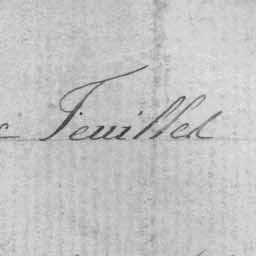 c Feuillet